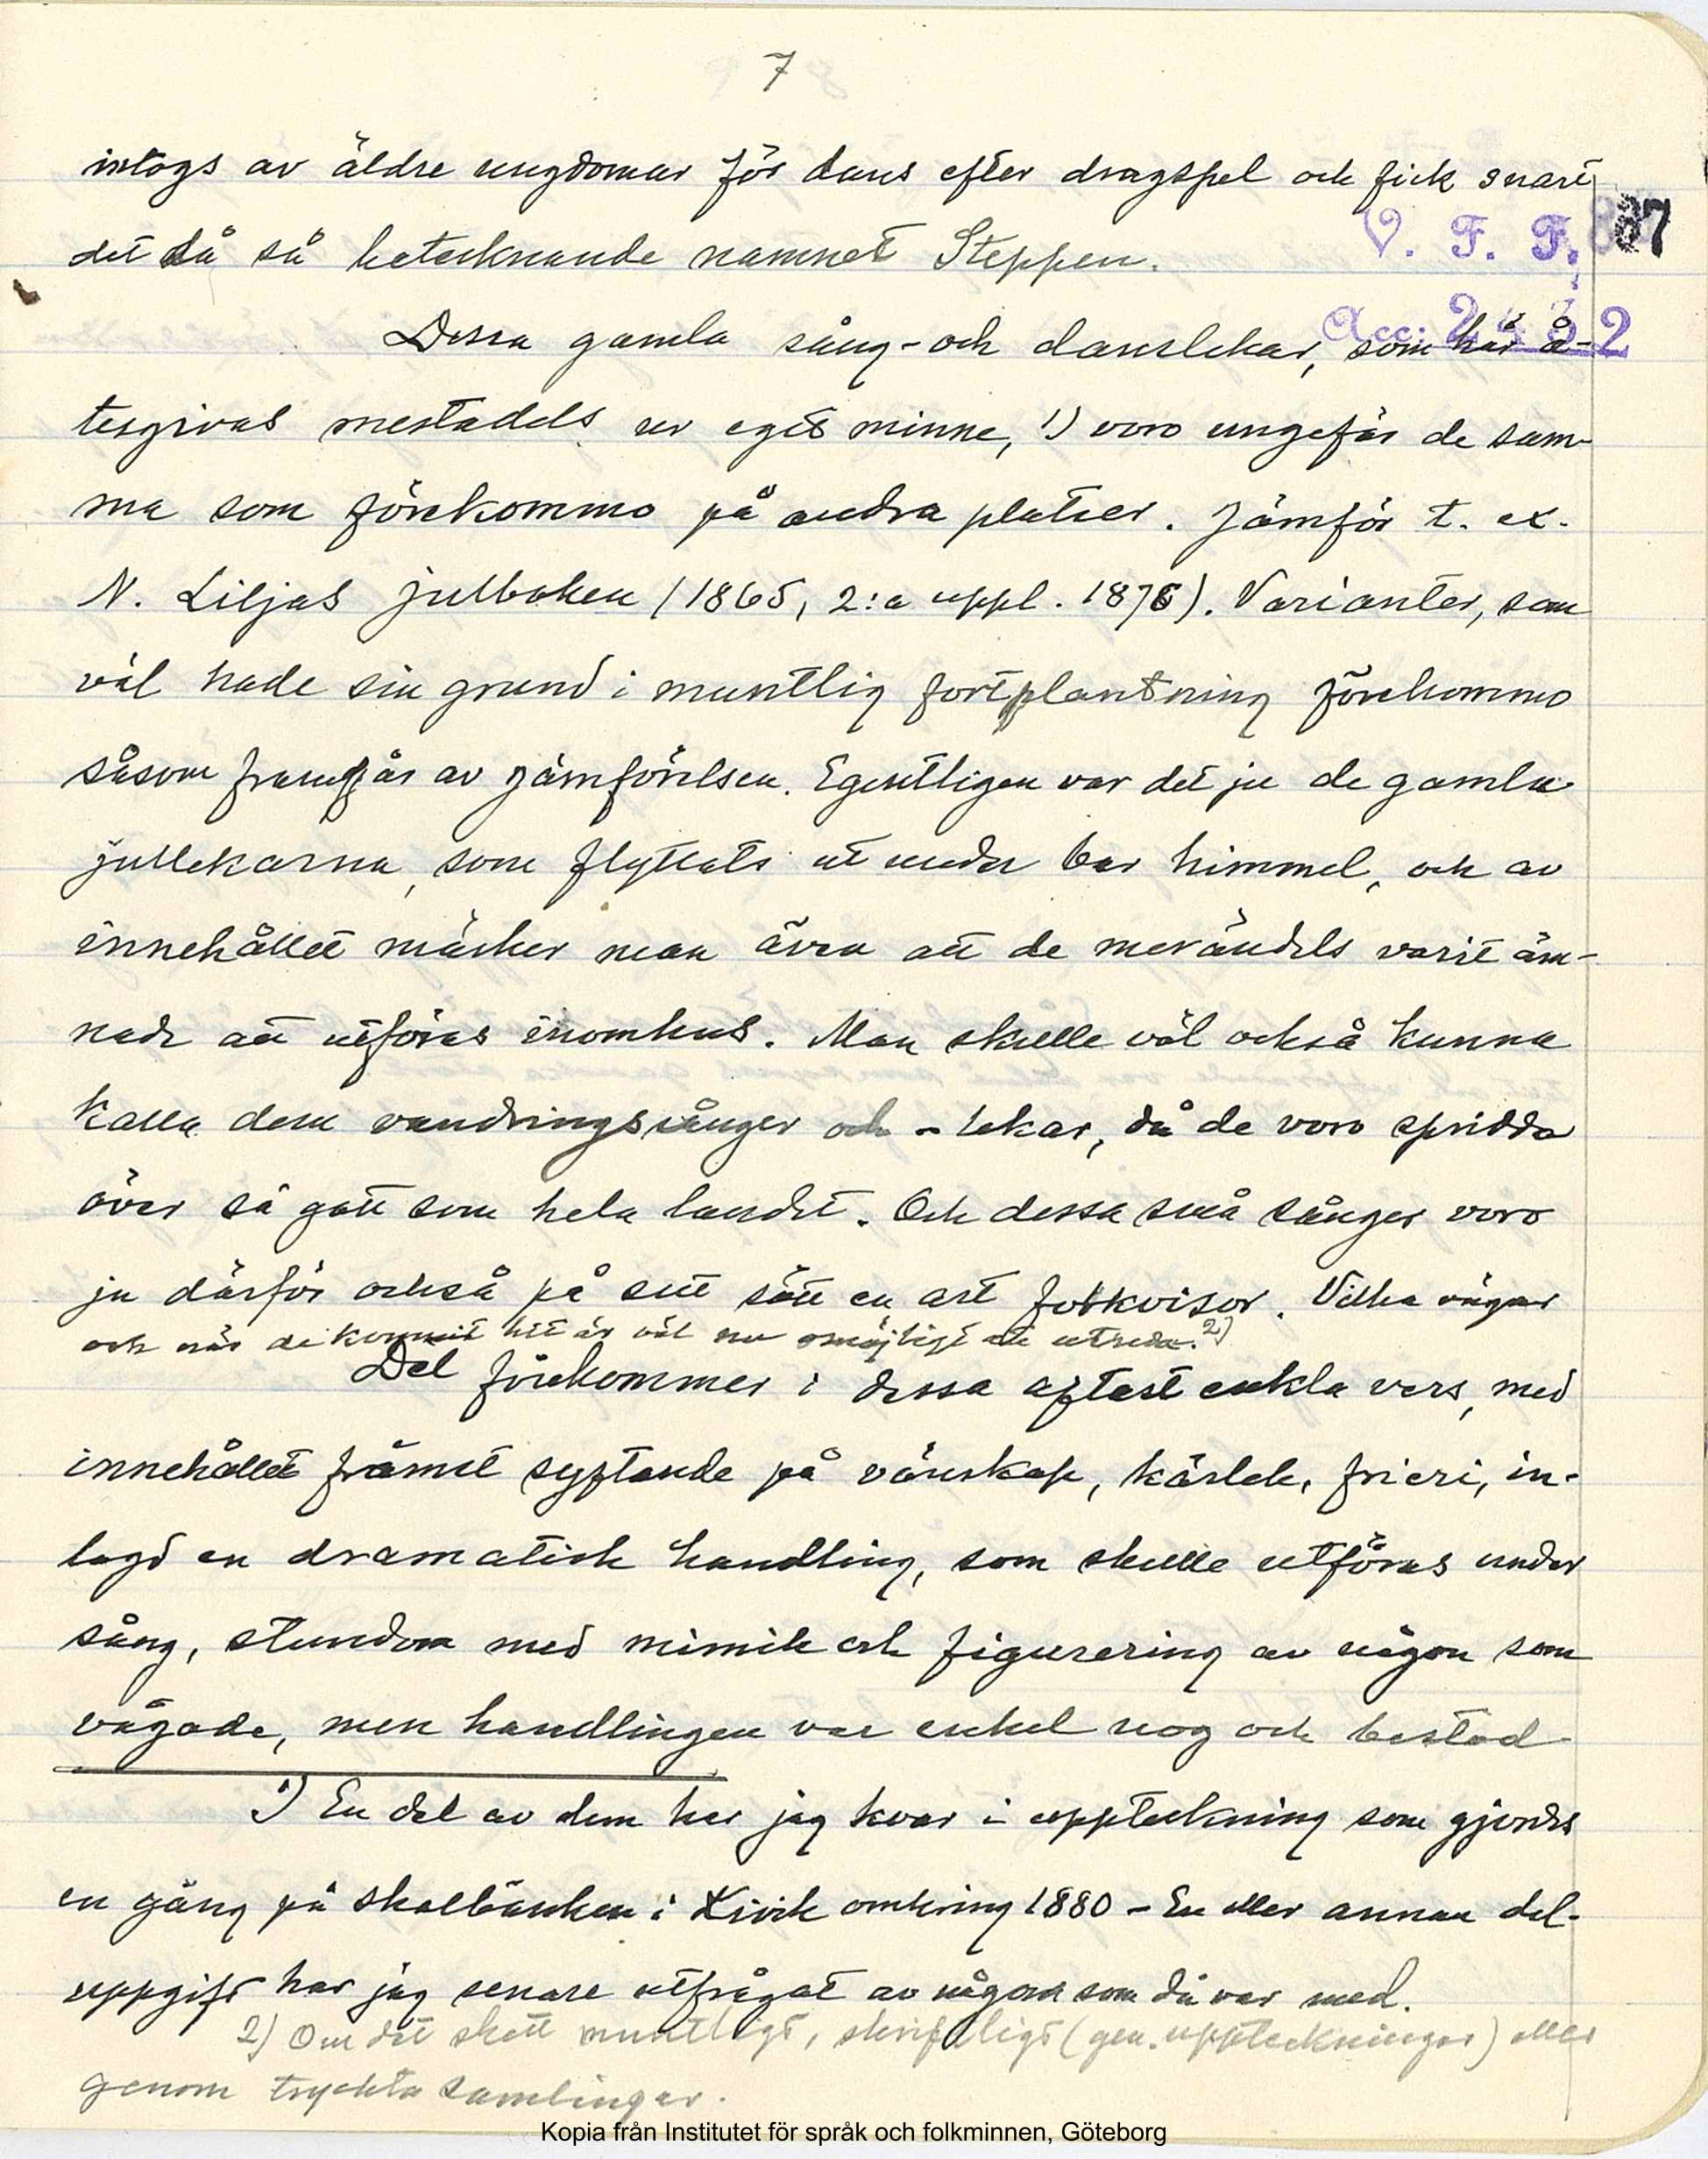 7
intogs av äldre ungdomar för dans efter dragspel och fick snart
V. F. F. 37
det då så betecknande namnet Steppen.
Acc: 2
Dessa gamla sång- och danslekar, som här å-
tergivas mestadels ur eget minne, 1) voro ungefär de sam-
ma som förekommo på andra platser. Jämför t. ex.
N. Liljas julboken (1865, 2:a uppl. 1876). Varianter, som
väl hade sin grund i muntlig fortplantning förekommo
såsom framgår av jämförelsen. Egentligen var det ju de gamla
jullekarna, som flyttats ut under bar himmel, och av
innehållet märker man även att de merändels varit äm-
nade att utföras inomhus. Man skulle väl också kunna
kalla dem vandringssånger och -lekar, då de voro spridda
över så gott som hela landet. Och dessa små sånger voro
ju därför också på sitt sätt en art folkvisor. Vilka vägar
och när de kommit hit är väl nu omöjligt att utreda. 2)
Det förekommer i dessa oftast enkla vers, med
innehållet främst syftande på vänskap, kärlek, frieri, in-
lagd en dramatisk handling, som skulle utföras under
sång, stundom med mimik och figurering av någon som
vågade, men handlingen var enkel nog och bestod
1) En del av dem har jag kvar i uppteckning som gjordes
en gång på skolbänken i Kivik omkring 1880 - En eller annan del-
uppgift har jag senare utfrågat av någon som då var med.
2) Om det skett muntligt, skriftligt (gen. uppteckningar) eller
genom tryckta samlingar.
Kopia från Institutet för språk och folkminnen, Göteborg